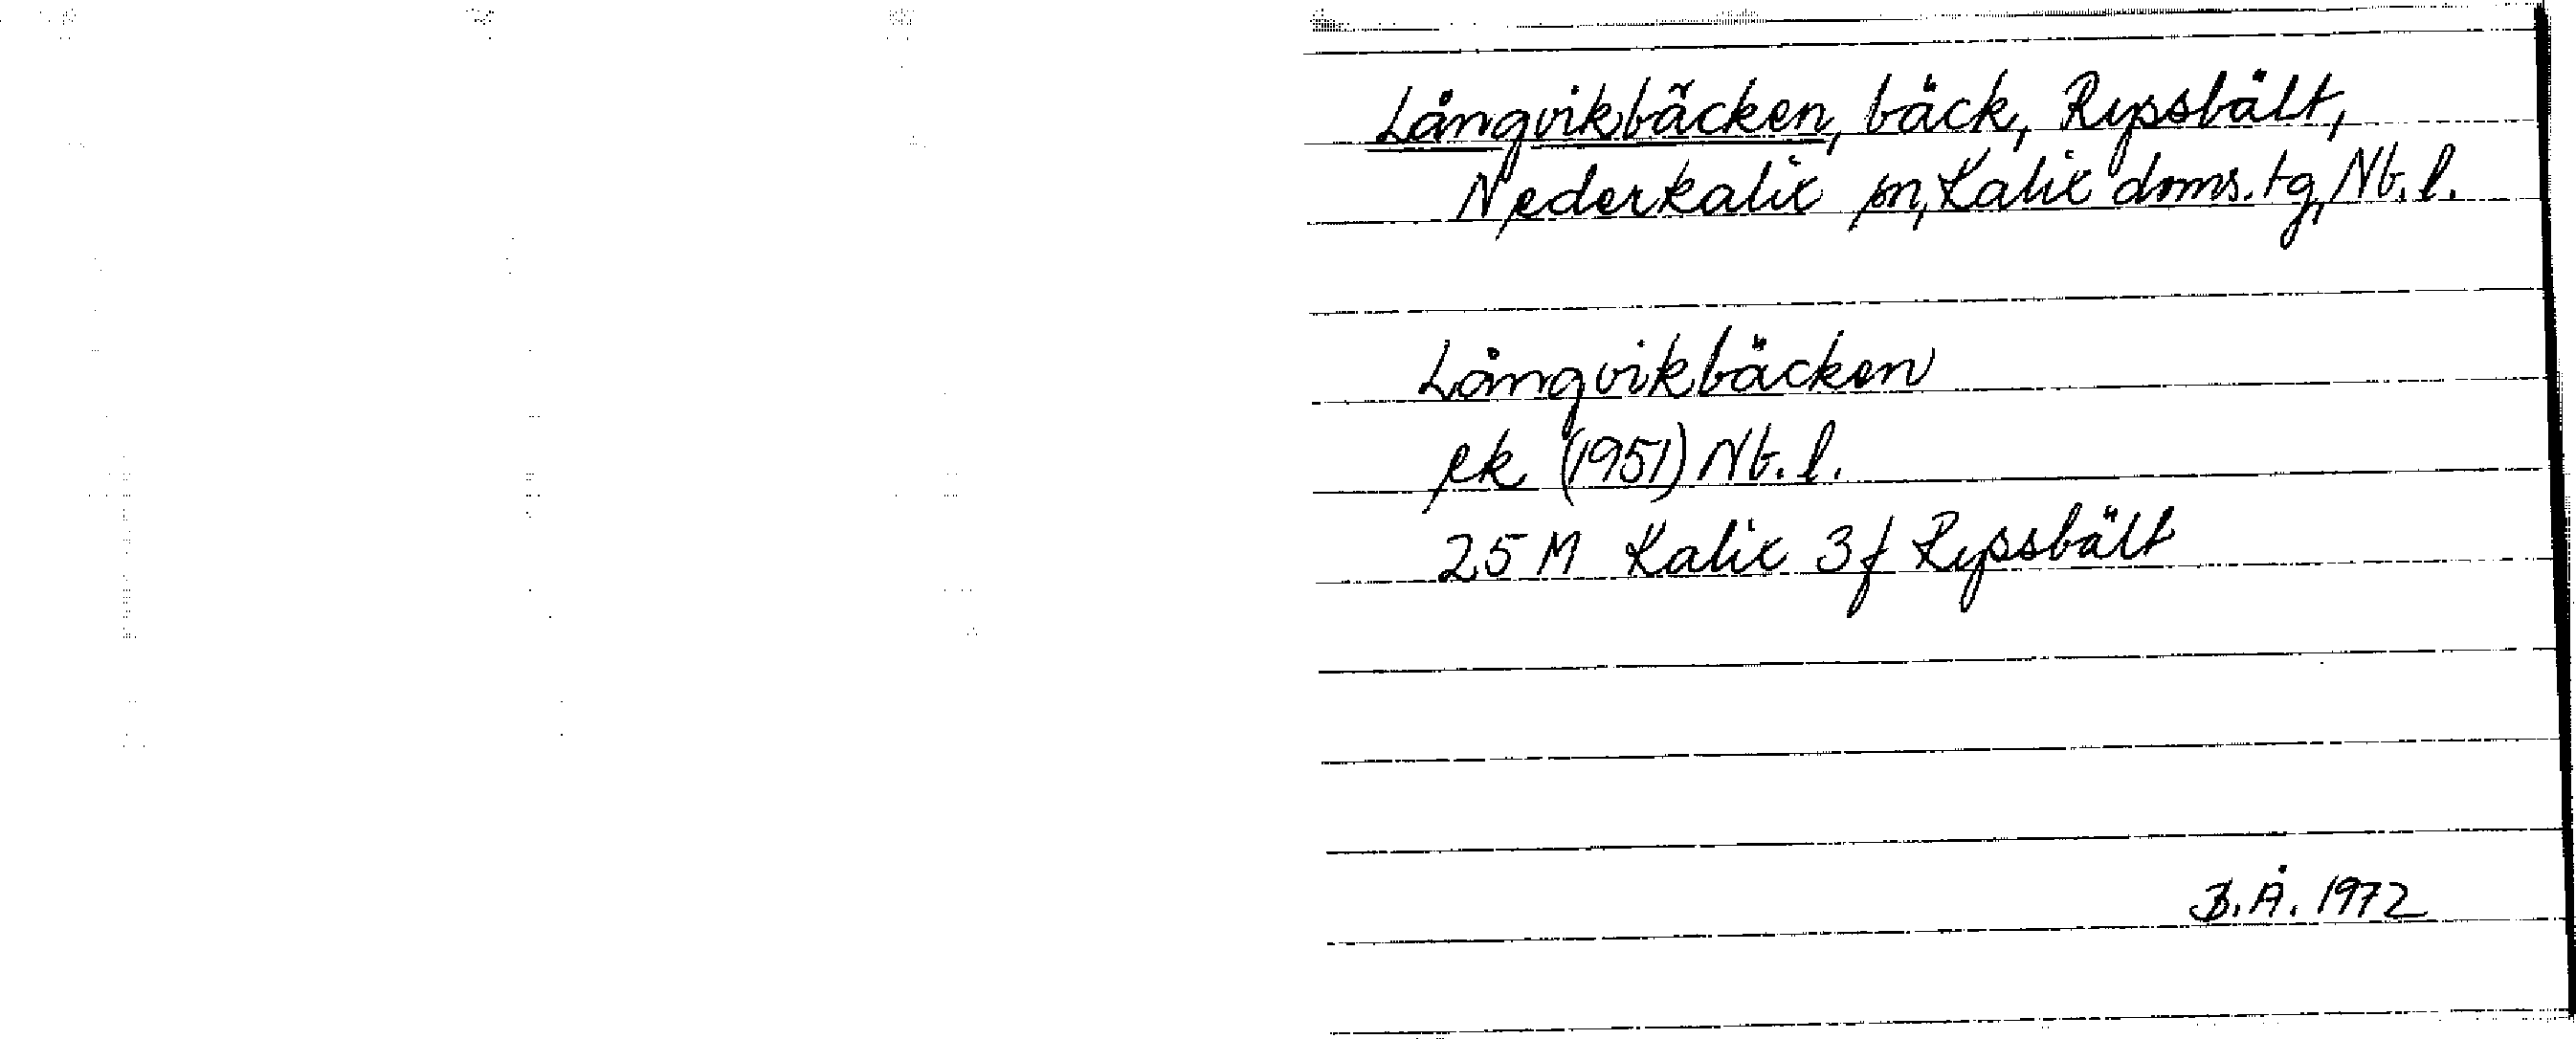 Långvikbäcken, bäck, Ryssbält,
Nederkalix sn, Kalix doms.tg, Nb.l.
Långvikbäcken
ek (1951) Nb.l.
25 M Kalix 3f Ryssbält
B.Å. 1972